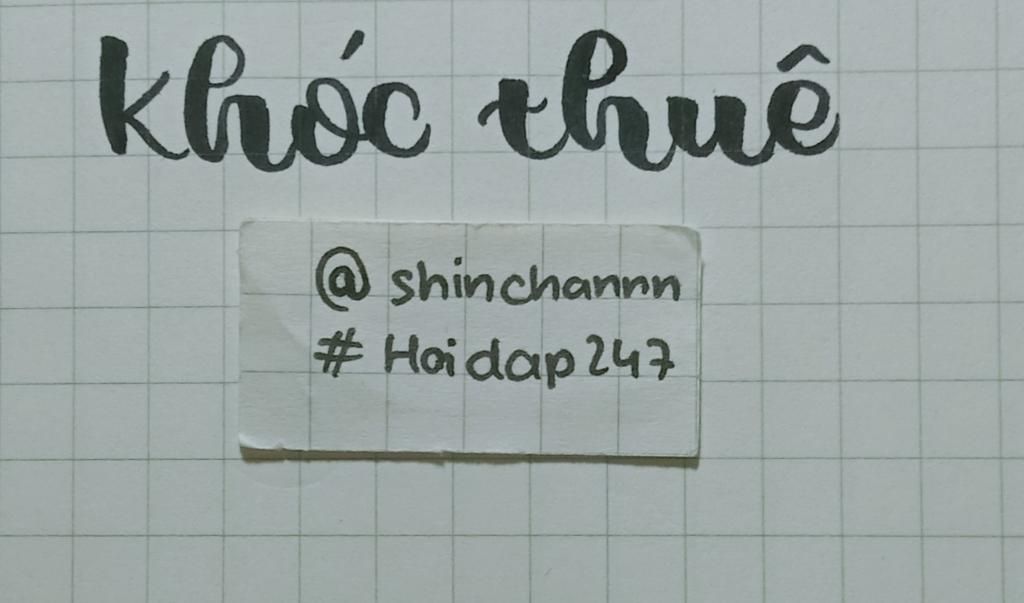 khóc thuê
@ shinchannn
# Hoidap247